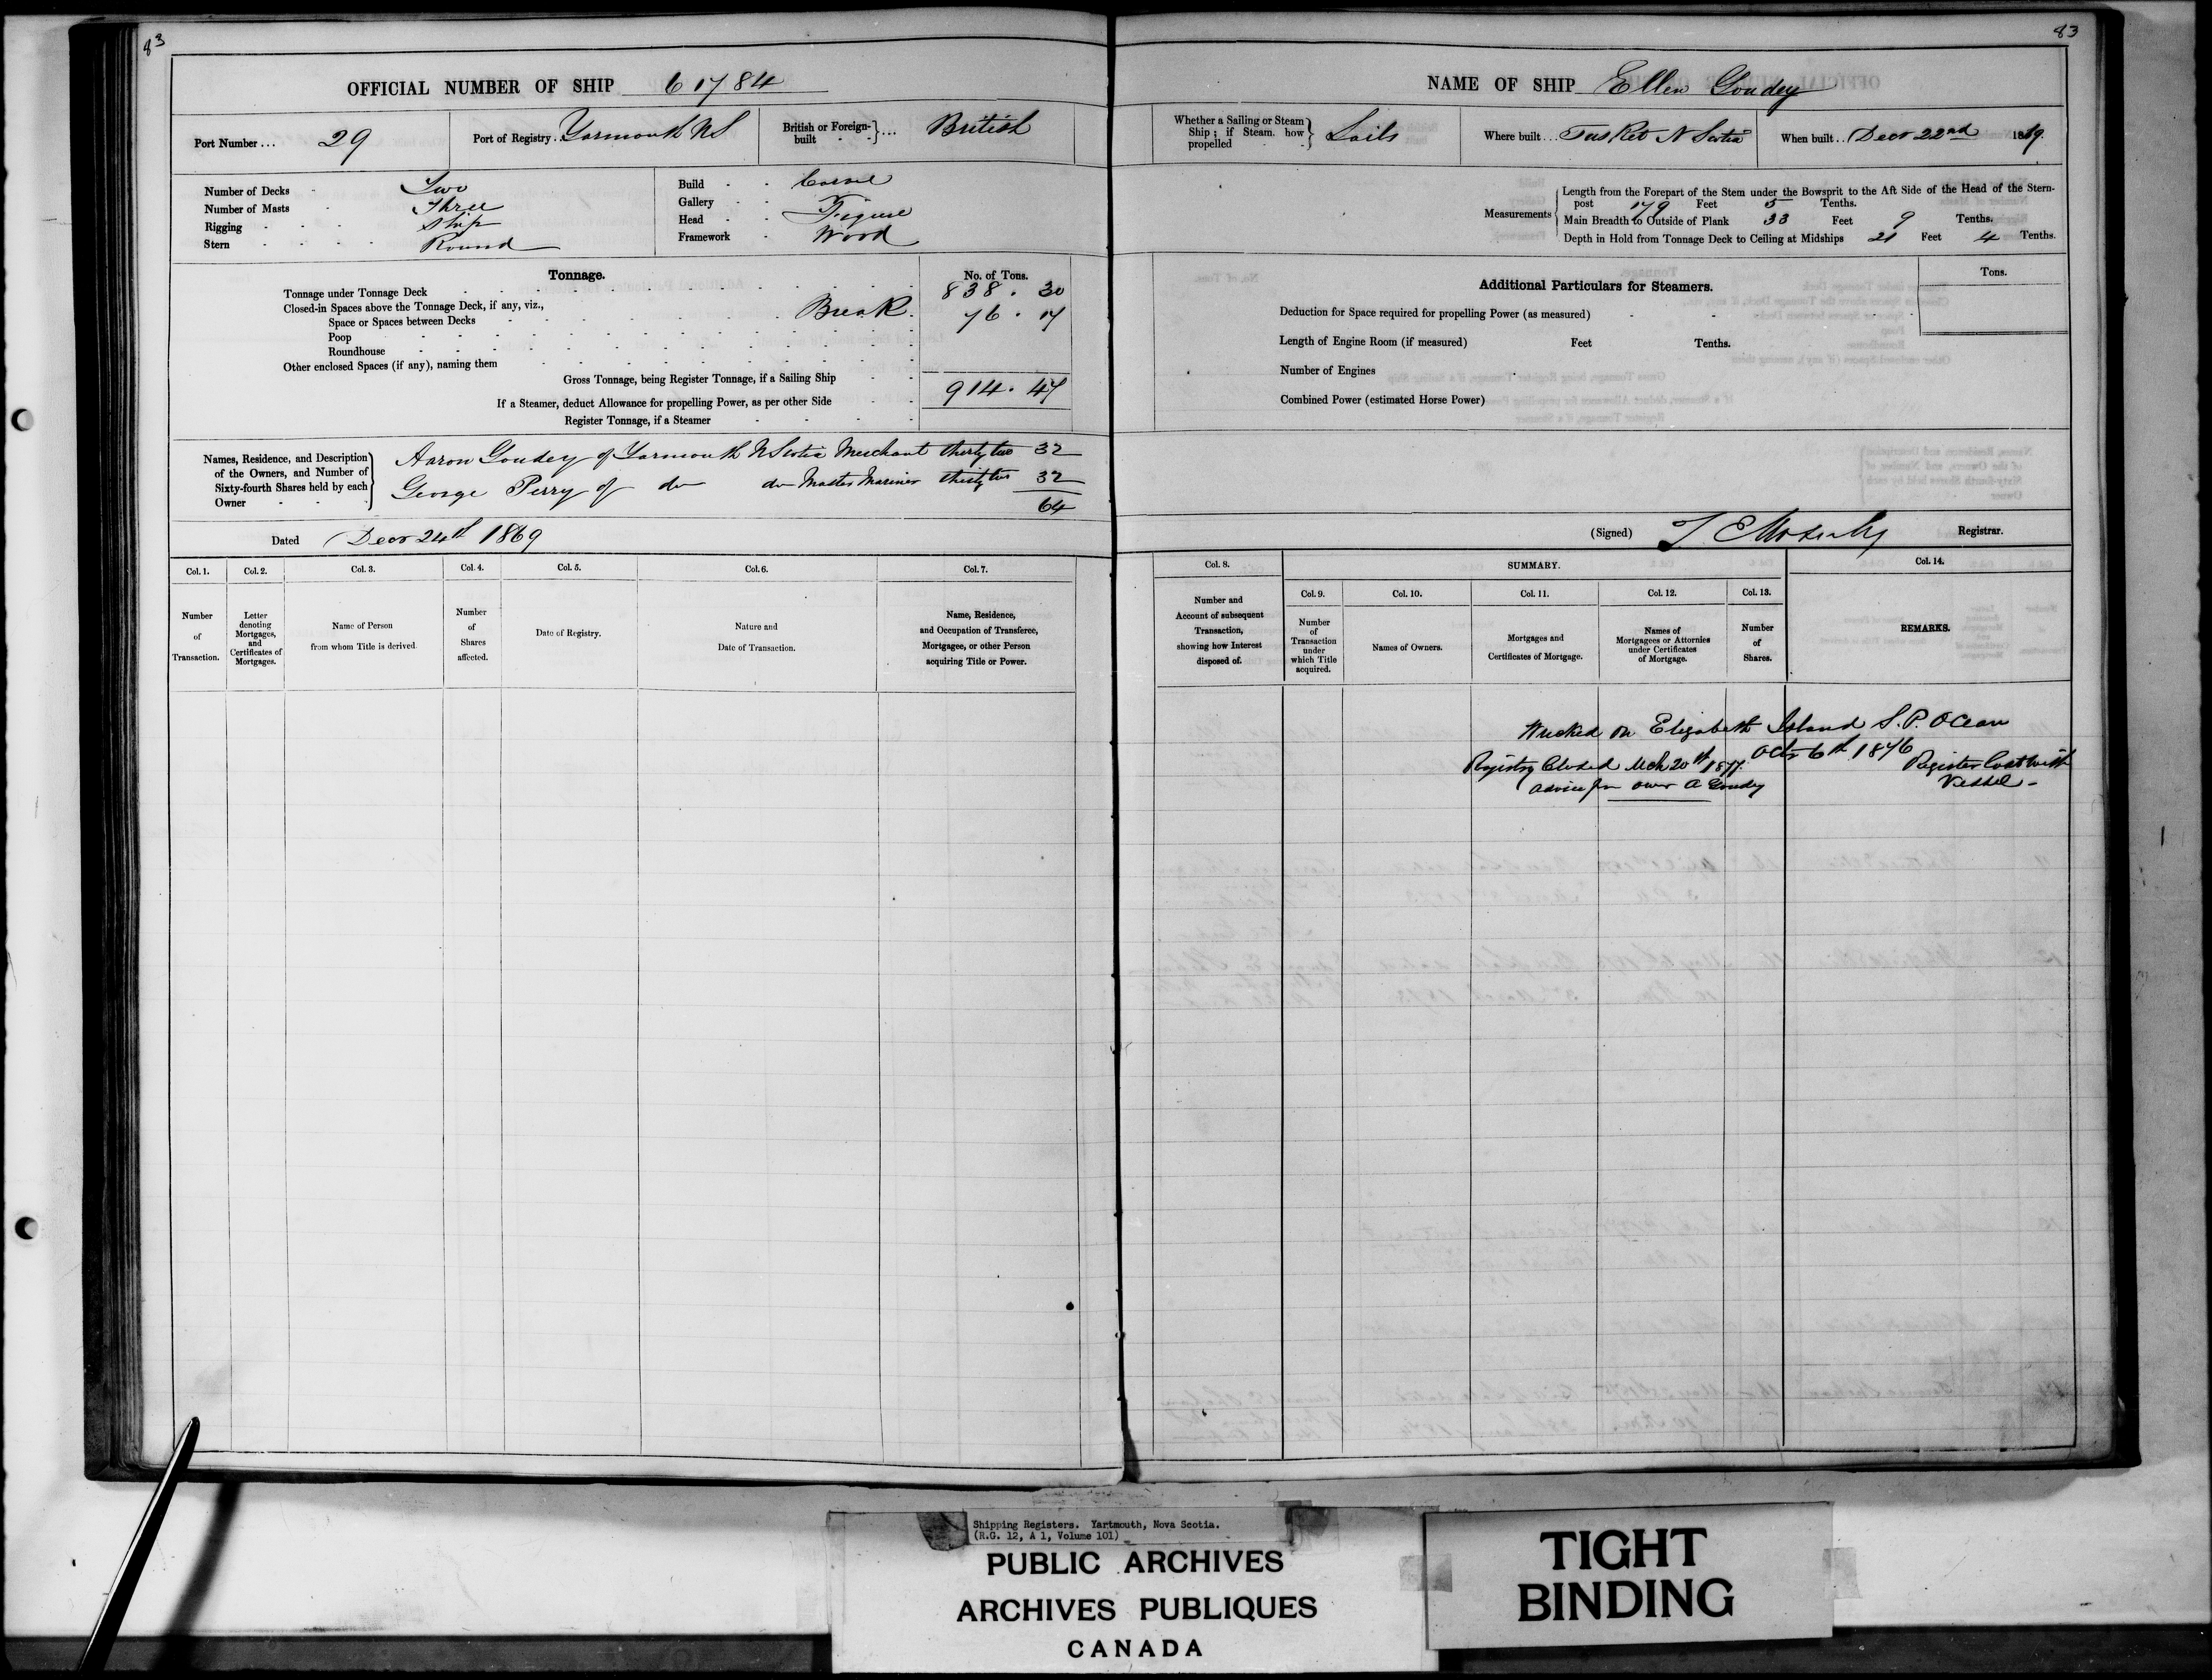 83
OFFICIAL NUMBER OF SHIP 61784
Port Number ... 29
Port of Registry. Yarmouth NS
British or Foreign-built ... British
Number of Decks - Two
Number of Masts - Three
Rigging - Ship
Stern - Round
Build - Carvel
Gallery -
Head - Figure
Framework - Wood
Tonnage.
No. of Tons.
Tonnage under Tonnage Deck 838.30
Closed-in Spaces above the Tonnage Deck, if any, viz.,
Space or Spaces between Decks Break 76.17
Poop
Roundhouse
Other enclosed Spaces (if any), naming them
Gross Tonnage, being Register Tonnage, if a Sailing Ship 914.47
If a Steamer, deduct Allowance for propelling Power, as per other Side
Register Tonnage, if a Steamer
Names, Residence, and Description
of the Owners, and Number of
Sixty-fourth Shares held by each
Owner
Aaron Goudey of Yarmouth N Scotia Merchant thirty two 32
George Perry of do do Master Mariner thirty two 32
64
Dated Decr 24th 1869
Col. 1.
Number
of
Transaction.
Col. 2.
Letter
denoting
Mortgages,
and
Certificates of
Mortgages.
Col. 3.
Name of Person
from whom Title is derived.
Col. 4.
Number
of
Shares
affected.
Col. 5.
Date of Registry.
Col. 6.
Nature and
Date of Transaction.
Col. 7.
Name, Residence,
and Occupation of Transferee,
Mortgagee, or other Person
acquiring Title or Power.
83
NAME OF SHIP Ellen Goudey
Whether a Sailing or Steam
Ship; if Steam. how
propelled
Sails
Where built ... Tusket N Scotia
When built .. Decr 22nd 1869.
Measurements
Length from the Forepart of the Stem under the Bowsprit to the Aft Side of the Head of the Stern-
post 179 Feet 5 Tenths.
Main Breadth to Outside of Plank 33 Feet 9 Tenths.
Depth in Hold from Tonnage Deck to Ceiling at Midships 21 Feet 4 Tenths.
Additional Particulars for Steamers.
Tons.
Deduction for Space required for propelling Power (as measured)
Length of Engine Room (if measured) Feet Tenths.
Number of Engines
Combined Power (estimated Horse Power)
(Signed) Registrar.
Col. 8.
Number and
Account of subsequent
Transaction,
showing how Interest
disposed of.
SUMMARY.
Col. 9.
Number
of
Transaction
under
which Title
acquired.
Col. 10.
Names of Owners.
Col. 11.
Mortgages and
Certificates of Mortgage.
Col. 12.
Names of
Mortgagees or Attornies
under Certificates
of Mortgage.
Col. 13.
Number
of
Shares.
Col. 14.
REMARKS.
Wrecked on Elizabeth Island S. P. Ocean
Octr 6th 1876
Registry Closed Mch 20th 1877. Register Lost with
advice fm owner A Goudey Vessel -
Shipping Registers. Yartmouth, Nova Scotia.
(R.G. 12, A 1, Volume 101)
PUBLIC ARCHIVES
ARCHIVES PUBLIQUES
CANADA
TIGHT
BINDING